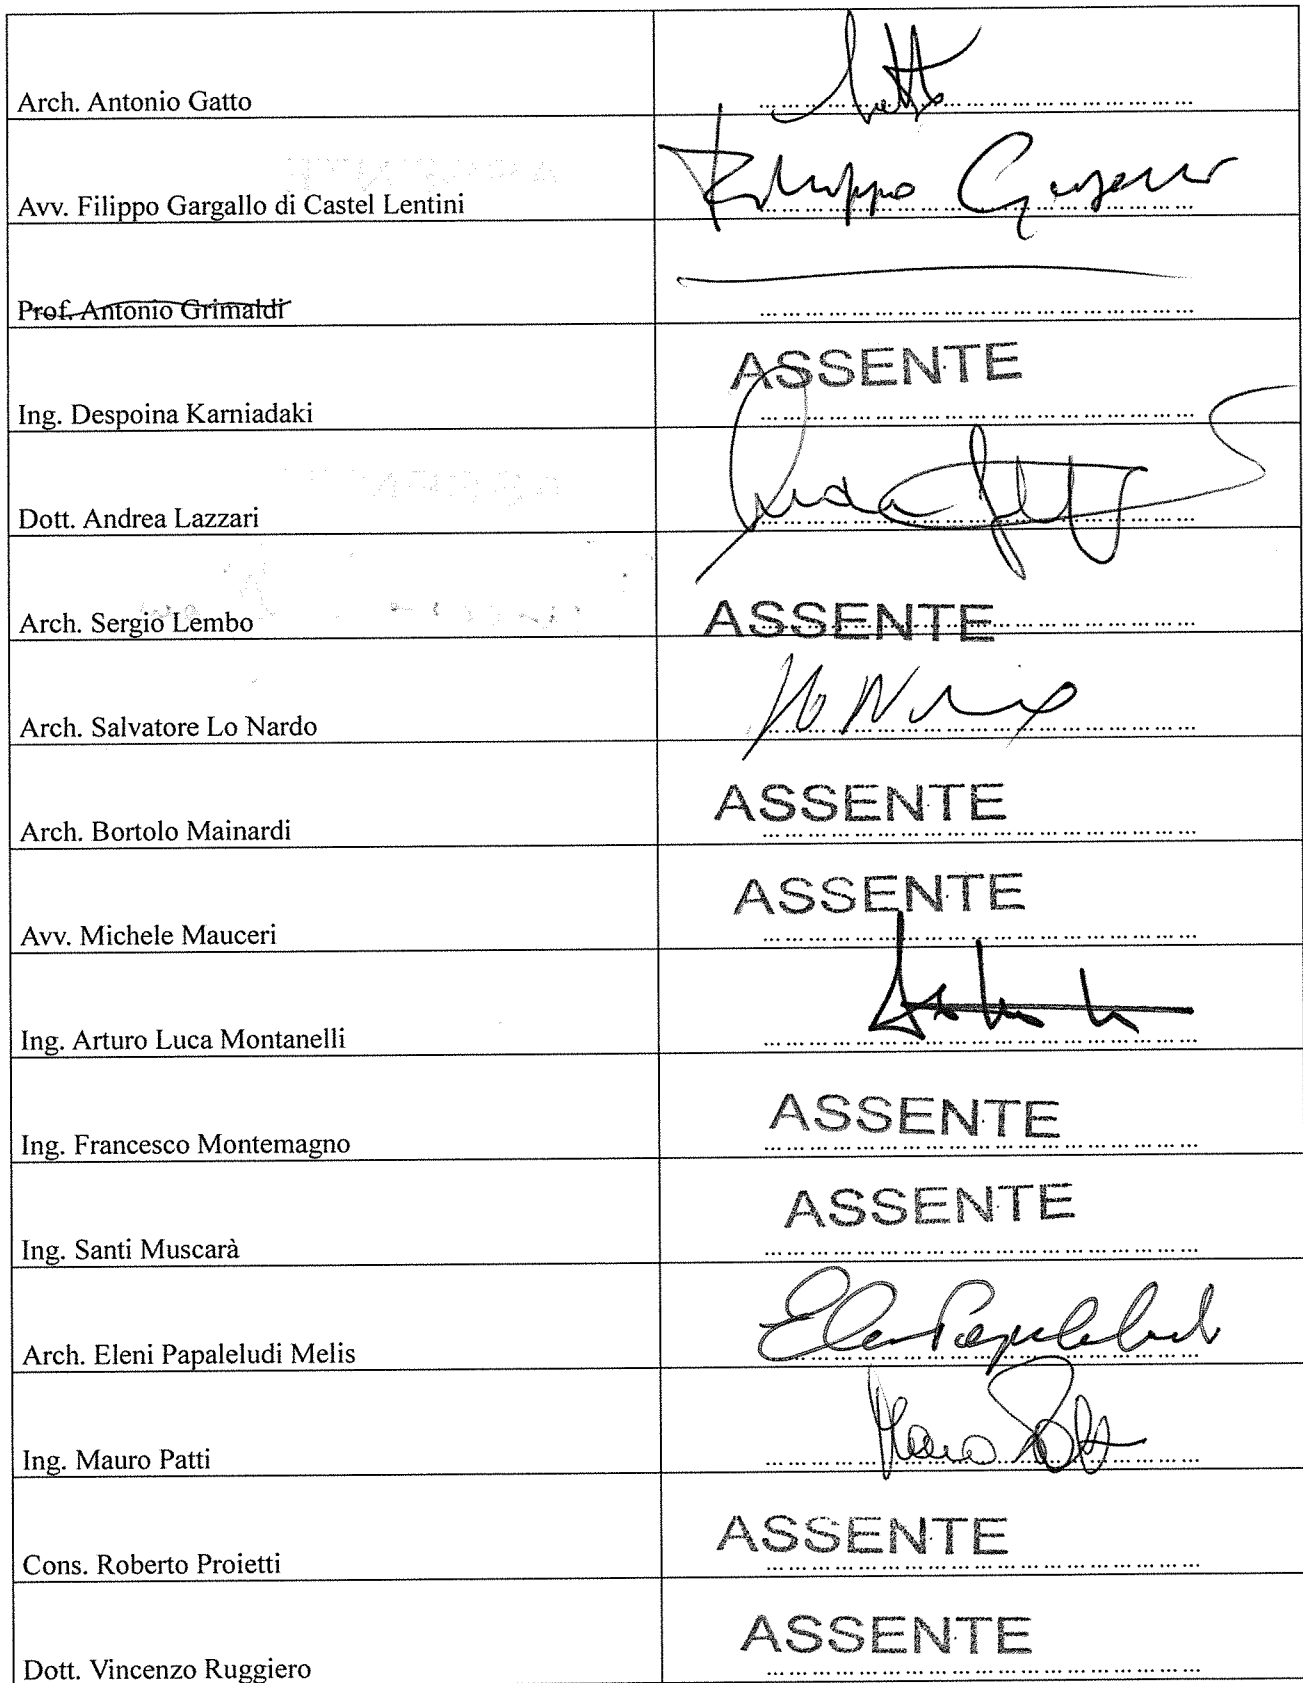 Arch. Antonio Gatto
Avv. Filippo Gargallo di Castel Lentini
Filippo
Prof. Antonio Grimaldi
Ing. Despoina Karniadaki
ASSENTE
Dott. Andrea Lazzari
Arch. Sergio Lembo
ASSENTE
Arch. Salvatore Lo Nardo
Arch. Bortolo Mainardi
ASSENTE
Avv. Michele Mauceri
ASSENTE
Ing. Arturo Luca Montanelli
Ing. Francesco Montemagno
ASSENTE
Ing. Santi Muscarà
ASSENTE
Arch. Eleni Papaleludi Melis
Ing. Mauro Patti
Cons. Roberto Proietti
ASSENTE
Dott. Vincenzo Ruggiero
ASSENTE